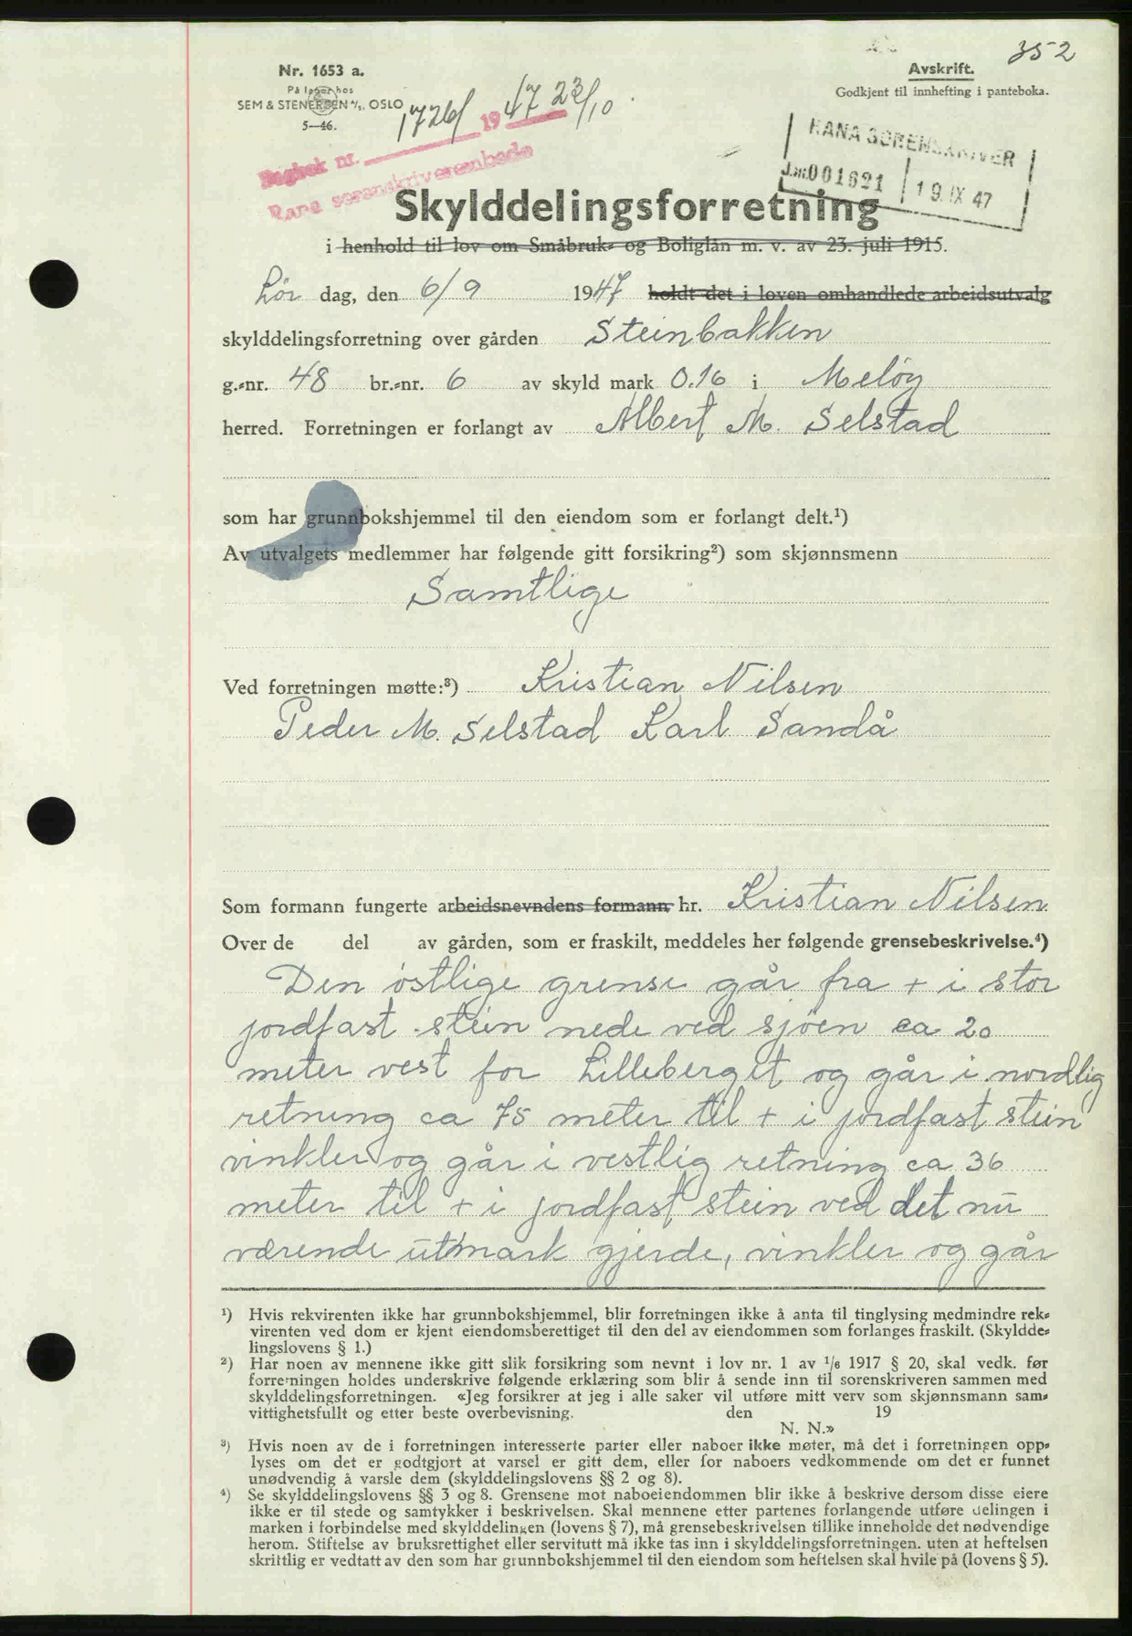 352
Nr. 1653 a.
På lager hos
SEM & STENERSEN A/S, OSLO
5—46.
Avskrift.
Godkjent til innhefting i panteboka.
Dagbok nr. 1726/ 1947 23/10
Rana sorenskriverembede
RANA SORENSKRIVER
J.nr. 001621 19. IX 47
Skylddelingsforretning
i henhold til lov om Småbruk- og Boliglån m. v. av 23. juli 1915.
Lør dag, den 6/9 1947 holdt det i loven omhandlede arbeidsutvalg
skylddelingsforretning over gården Steinbakken
g.-nr. 48 br.-nr. 6 av skyld mark 0.16 i Meløy
herred. Forretningen er forlangt av Albert M. Selstad
som har grunnbokshjemmel til den eiendom som er forlangt delt.¹)
Av utvalgets medlemmer har følgende gitt forsikring²) som skjønnsmenn
Samtlige
Ved forretningen møtte:³) Kristian Nilsen
Peder M. Selstad Karl Sandå
Som formann fungerte arbeidsnevndens formann, hr. Kristian Nilsen
Over de del av gården, som er fraskilt, meddeles her følgende grensebeskrivelse.⁴)
Den østlige grense går fra + i stor
jordfast stein nede ved sjøen ca 20
meter vest for Lilleberget og går i nordlig
retning ca 75 meter til + i jordfast stein
vinkler og går i vestlig retning ca 36
meter til + i jordfast stein ved det nu
værende utmark gjerde, vinkler og går
¹) Hvis rekvirenten ikke har grunnbokshjemmel, blir forretningen ikke å anta til tinglysing medmindre rek-
virenten ved dom er kjent eiendomsberettiget til den del av eiendommen som forlanges fraskilt. (Skyldde-
lingslovens § 1.)
²) Har noen av mennene ikke gitt slik forsikring som nevnt i lov nr. 1 av 1/6 1917 § 20, skal vedk. før
forretningen holdes underskrive følgende erklæring som blir å sende inn til sorenskriveren sammen med
skylddelingsforretningen. «Jeg forsikrer at jeg i alle saker vil utføre mitt verv som skjønnsmann sam-
vittighetsfullt og etter beste overbevisning. den 19
N. N.»
³) Hvis noen av de i forretningen interesserte parter eller naboer ikke møter, må det i forretningen opp-
lyses om det er godtgjort at varsel er gitt dem, eller for naboers vedkommende om det er funnet
unødvendig å varsle dem (skylddelingslovens §§ 2 og 8).
⁴) Se skylddelingslovens §§ 3 og 8. Grensene mot naboeiendommen blir ikke å beskrive dersom disse eiere
ikke er til stede og samtykker i beskrivelsen. Skal mennene etter partenes forlangende utføre delingen i
marken i forbindelse med skylddelingen (lovens § 7), må grensebeskrivelsen tillike inneholde det nødvendige
herom. Stiftelse av bruksrettighet eller servitutt må ikke tas inn i skylddelingsforretningen. uten at heftelsen
skriftlig er vedtatt av den som har grunnbokshjemmel til den eiendom som heftelsen skal hvile på (lovens § 5).